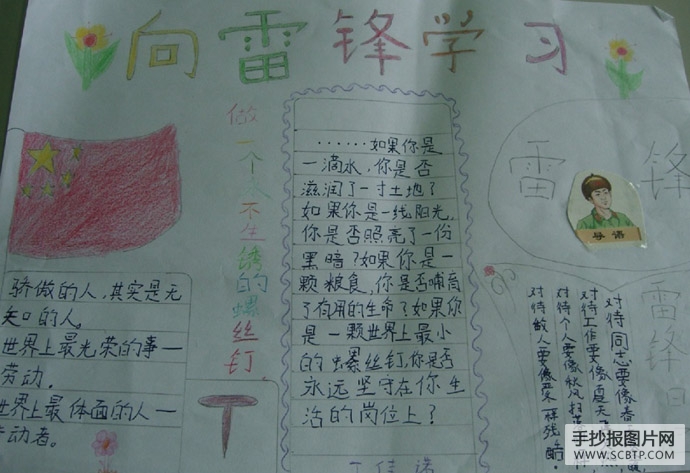 向雷锋学习
做一个永不生锈的螺丝钉
骄傲的人,其实是无
知的人。
世界上最光荣的事—
劳动.
世界上最体面的人—
动者。
······如果你是
一滴水,你是否
滋润了一寸土地?
如果你是一线阳光,
你是否照亮了一份
黑暗?如果你是一
颗粮食,你是否哺育
了有用的生命?如果你
是一颗世界上最小
的螺丝钉,你是否
永远坚守在你生
活的岗位上?
雷 锋
导语
雷锋日
对待同志要像春
对待工作要像夏天
对待个人要像秋风扫
对待敌人要像严冬一样残酷!
手抄报图片网
WWW.SCBTP.COM